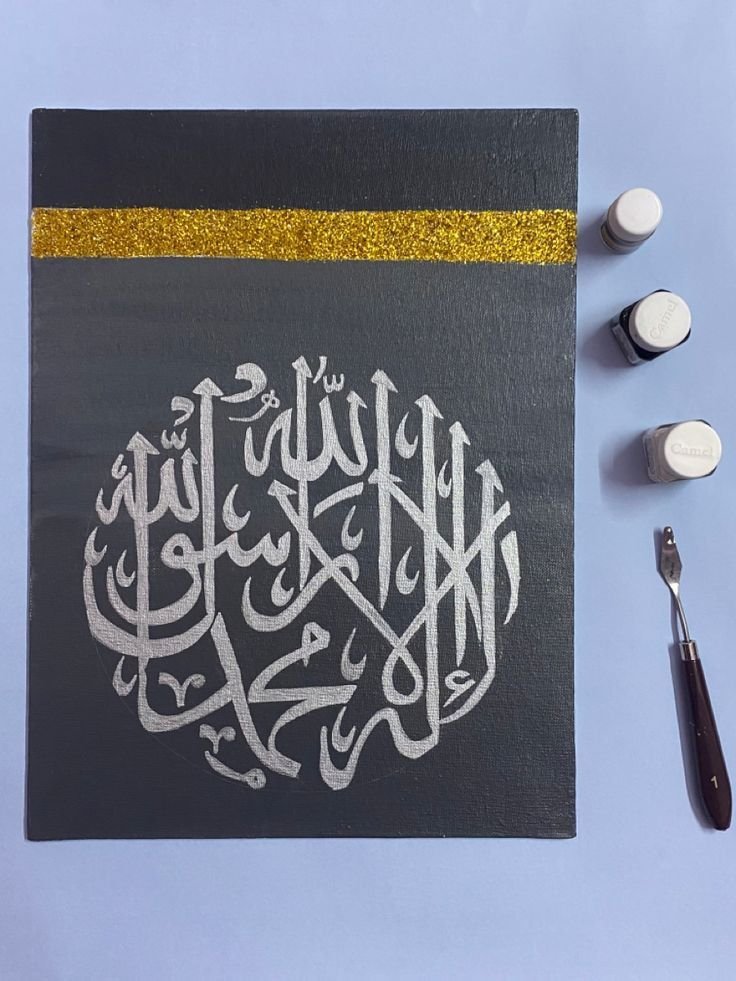 لا إله إلا الله محمد رسول الله
Camel
Camel
1